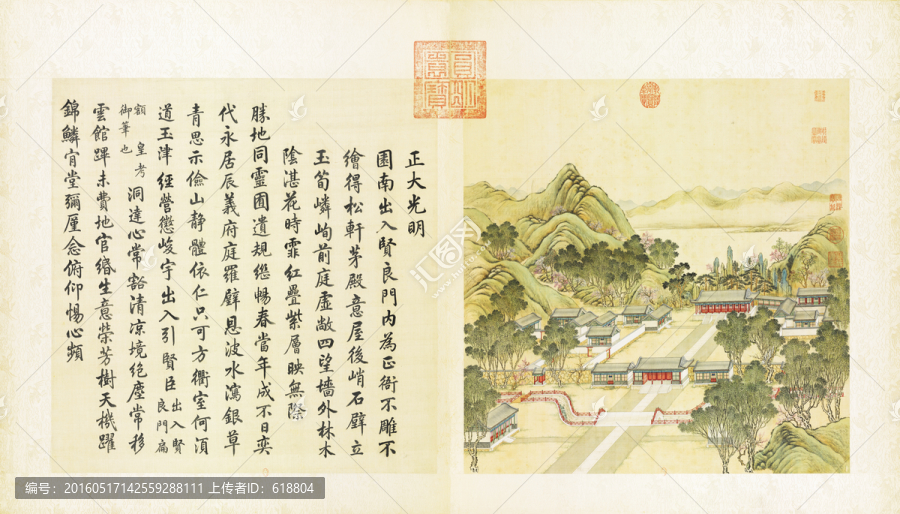 正大光明
園南出入賢良門内為正衙不雕不
繪得松軒茅殿意屋後峭石壁立
玉筍嶙峋前庭虛敞四望墻外林木
陰湛花時霏紅疊紫層映無際
勝地同靈囿遺規繼暢春當年成不日奕
代永居辰義府庭羅壁恩波水瀉銀草
青思示儉山静體依仁只可方衢室何須
道玉津經營懲峻宇出入引賢臣出入賢良門扁
額皇考御筆也洞達心常豁清凉境絶塵常移
雲館蹕未費地官緡生意榮芳樹天機躍
錦鱗宵堂彌厪念俯仰惕心頻
汇图网
编号：20160517142559288111 上传者ID：618804